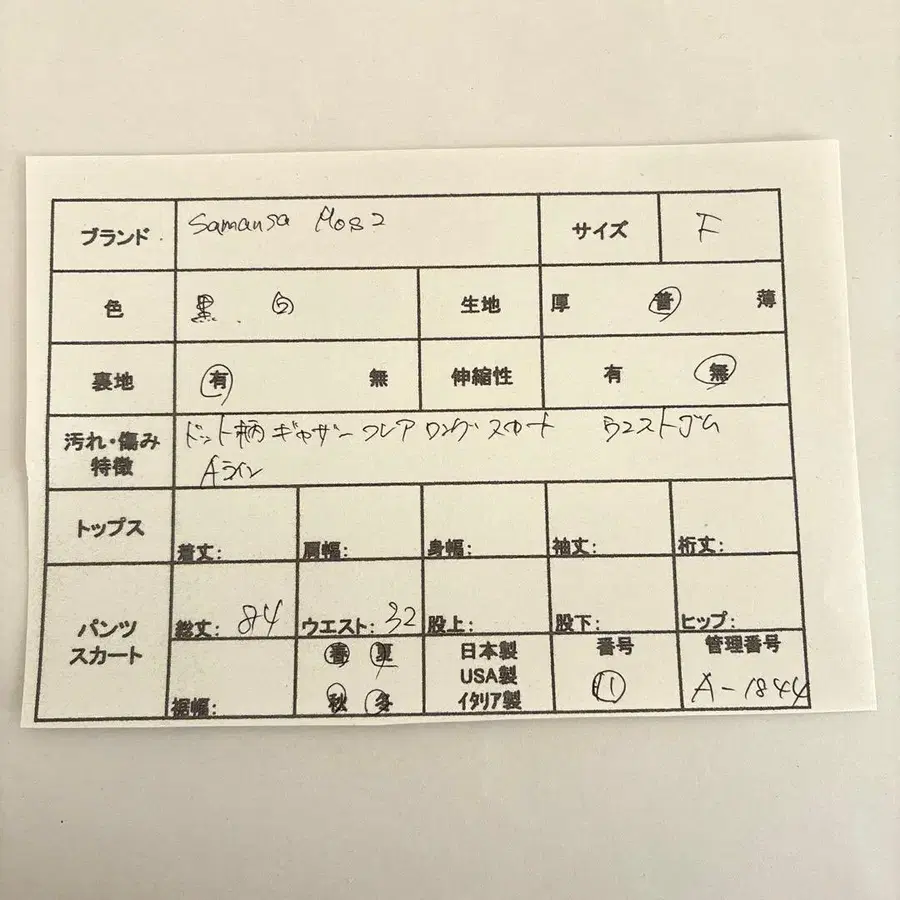 ブランド Samansa Mos2 サイズ F
色 黒 白 生地 厚 普 薄
裏地 有 無 伸縮性 有 無
汚れ・傷み 特徴 ドット柄 ギャザー フレア ロング スカート ウエストゴム
Aライン
トップス 着丈: 肩幅: 身幅: 袖丈: 裄丈:
パンツ スカート 総丈: 84 ウエスト: 32 股上: 股下: ヒップ:
裾幅: 春 夏 秋 冬 日本製 USA製 イタリア製 番号 11 管理番号 A-1844